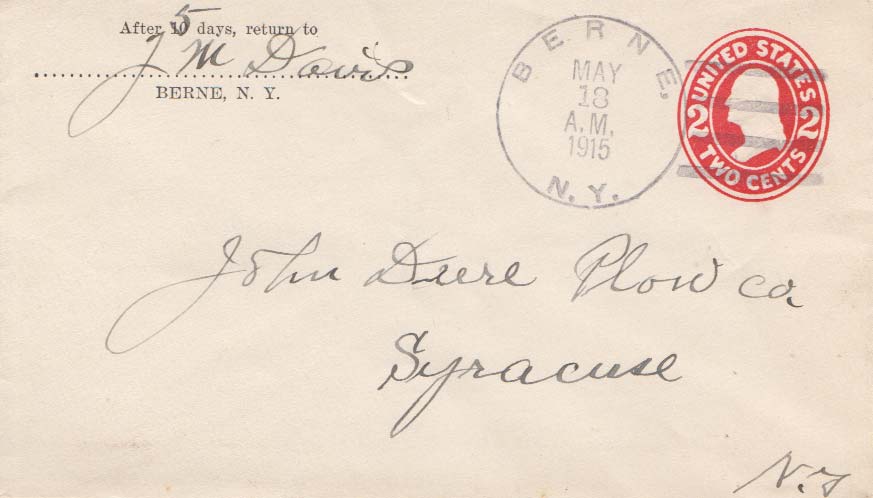 After 10 5 days, return to
J M Davis
BERNE, N. Y.
BERNE, N.Y.
MAY
18
A.M.
1915
UNITED STATES
2 2
TWO CENTS
John Deere Plow Co.
Syracuse
N.Y